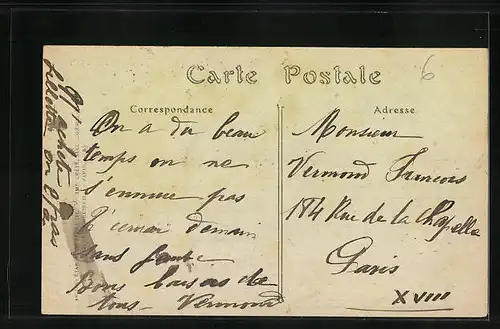 6
Carte Postale
Correspondance
Adresse
On a du beau
temps on ne
s'ennuie pas
demain
sans faute
Bons baisers de
tous Vermond
Monsieur
Vermond Francois
184 Rue de la Chapelle
Paris
XVIII